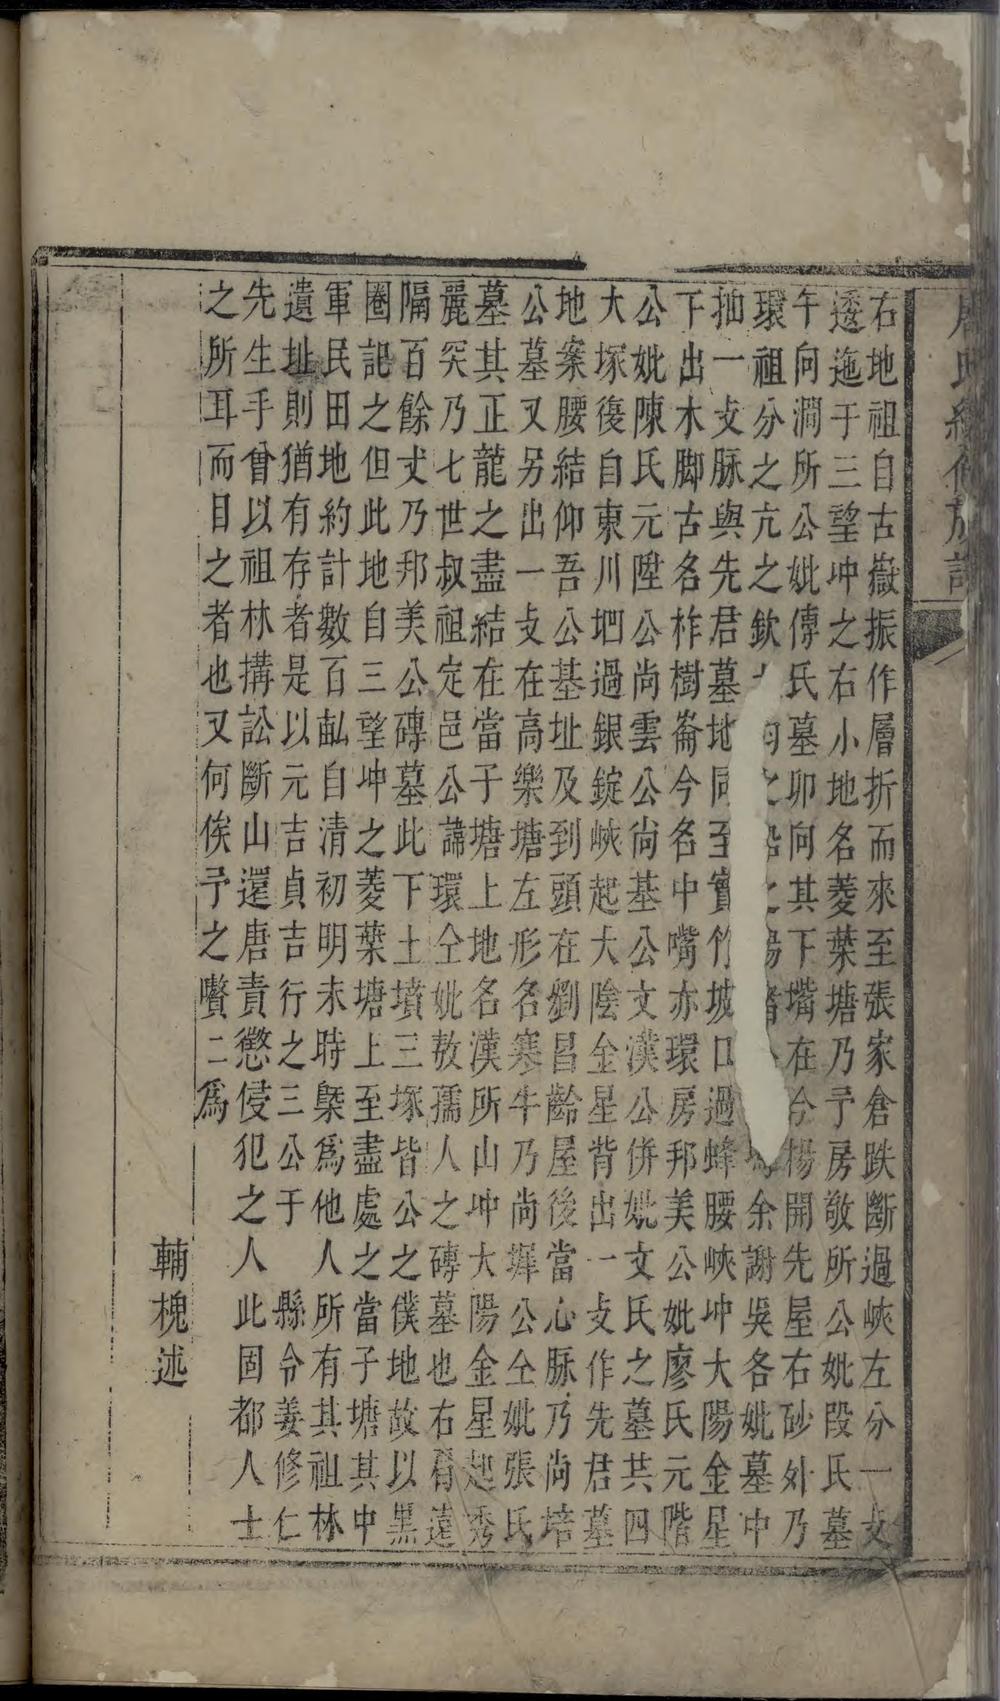 唐氏續修族譜
右地祖自古嶽振作層折而來至張家倉跌斷過峽左分一支
透迤于三望坤之右小地名菱葉塘乃予房敬所公妣段氏墓
午向澗所公妣傳氏墓卯向其下嘴在兮楊開先屋右砂外乃
環祖分之亢之欽 余謝吳各妣墓中
抽一支脉與先君墓地同至實竹坡口過蜂腰峽坤大陽金星
下出木脚古名柞樹崙今名中嘴亦環房邦美公妣廖氏元階
公妣陳氏元陞公尚雲公尚基公文漢公併妣文氏之墓共四
大塚復自東川垇過銀錠峽起大陰金星背出一支作先君墓
地案腰結仰吾公基址及到頭在劉昌齡屋後當心脉乃尚培
公墓又另出一支在高樂塘左形名寒牛乃尚墀公仝妣張氏
墓其正龍之盡結在當子塘上地名漢所山坤大陽金星起秀
麗突乃七世叔祖定邑公諱環仝妣敖孺人之磚墓也右脣遠
隔百餘丈乃邦美公磚墓此下土墳三塚皆公之僕地故以黑
圈記之但此地自三望坤之菱葉塘上至盡處之當子塘其中
軍民田地約計數百畝自清初明末時槩爲他人所有其祖林
遺址則猶有存者是以元吉貞吉行之三公于 縣令姜修仁
先生手曾以祖林搆訟斷山還唐責懲侵犯之人 此固都人士
之所耳而目之者也又何俟予之贅二爲
輔槐述